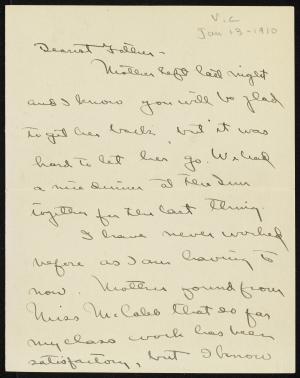 V.C
Jan 13-1910
Dearest Father -
Mother left last night
and I know you will be glad
to get her back but it was
hard to let her go. We had
a nice dinner at the Inn
together for the last thing.
I have never worked
before as I am having to
now. Mother found from
Miss McCaleb that so far
my class work has been
satisfactory, but I know